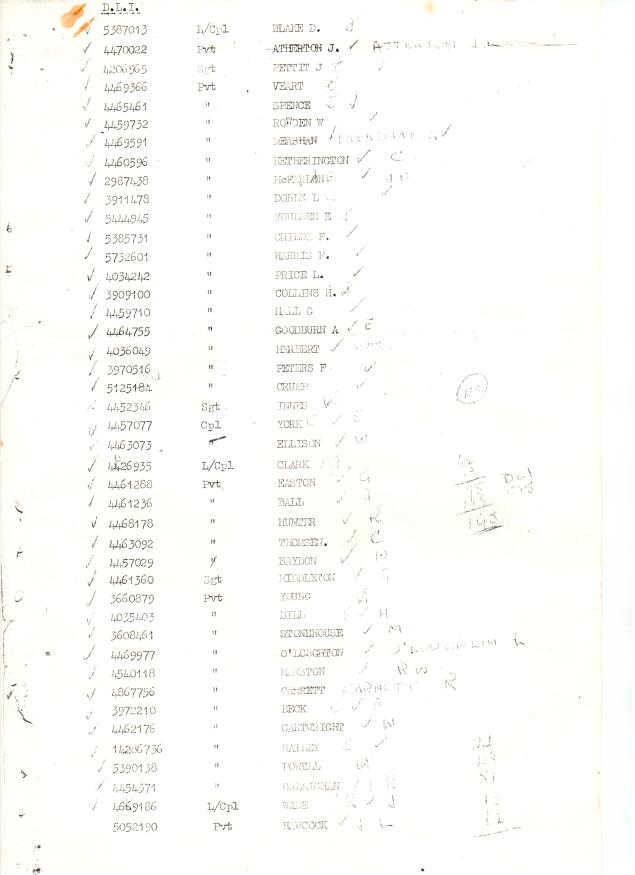 D.L.I.
✓ 5387013 L/Cpl BLAKE D. J
✓ 4470022 Pvt ATHERTON J. ✓ ATTERTON J.L
✓ 4206965 Sgt PETTIT J
✓ 4469366 Pvt VEART
✓ 4465461 " SPENCE J ✓
✓ 4459732 " ROWDEN W ✓
✓ 4469591 " MEASHAN ✓
✓ 4460596 " HETHERINGTON ✓ C
✓ 2987438 " McFARLANE ✓
✓ 3911478 " DOBLE L ✓
✓ 5444945 " YOULDEN E
✓ 5385731 " CHILDS F. ✓
✓ 5732601 " HARRIS F. ✓
✓ 4034242 " PRICE L. ✓
✓ 3909100 " COLLINS H.
✓ 4459710 " HALL G ✓
✓ 4464755 " GOODBURN A ✓ E
✓ 4036049 " HERBERT ✓
✓ 3970516 " PETERS F ✓
✓ 5125184 " CRUMP ✓
4452346 Sgt INNES W NO
✓ 4457077 Cpl YORK E
✓ 4463073 " ELLISON ✓ W
✓ 4426935 L/Cpl CLARK J
✓ 4461288 Pvt EASTON ✓ G
✓ 4461236 " BALL ✓ J DLI
✓ 4468178 " HUNTER ✓ R
✓ 4463092 " THOMSEN. ✓ C
✓ 4457029 " BRYDON ✓ W
✓ 4461360 Sgt MIDDLETON ✓ G
✓ 3660879 Pvt YOUNG A
✓ 4035403 " BILL H
✓ 3608461 " STONEHOUSE ✓ M
✓ 4469977 " O'LOUGHTON ✓ O'LOUGHLIN L
✓ 4540118 " MARSTON ✓ R W
✓ 4867756 " GARRETT GARNETT R
✓ 3972210 " BECK ✓ A
✓ 4462176 " CARTWRIGHT ✓ W
✓ 14286736 " BAILEY C ✓
✓ 5390138 " POWELL W
✓ 4454371 " GALLIGHAN ✓ J R
✓ 4669186 L/Cpl WADE R ✓ J
5052190 Pvt HAWCOCK ✓ J L